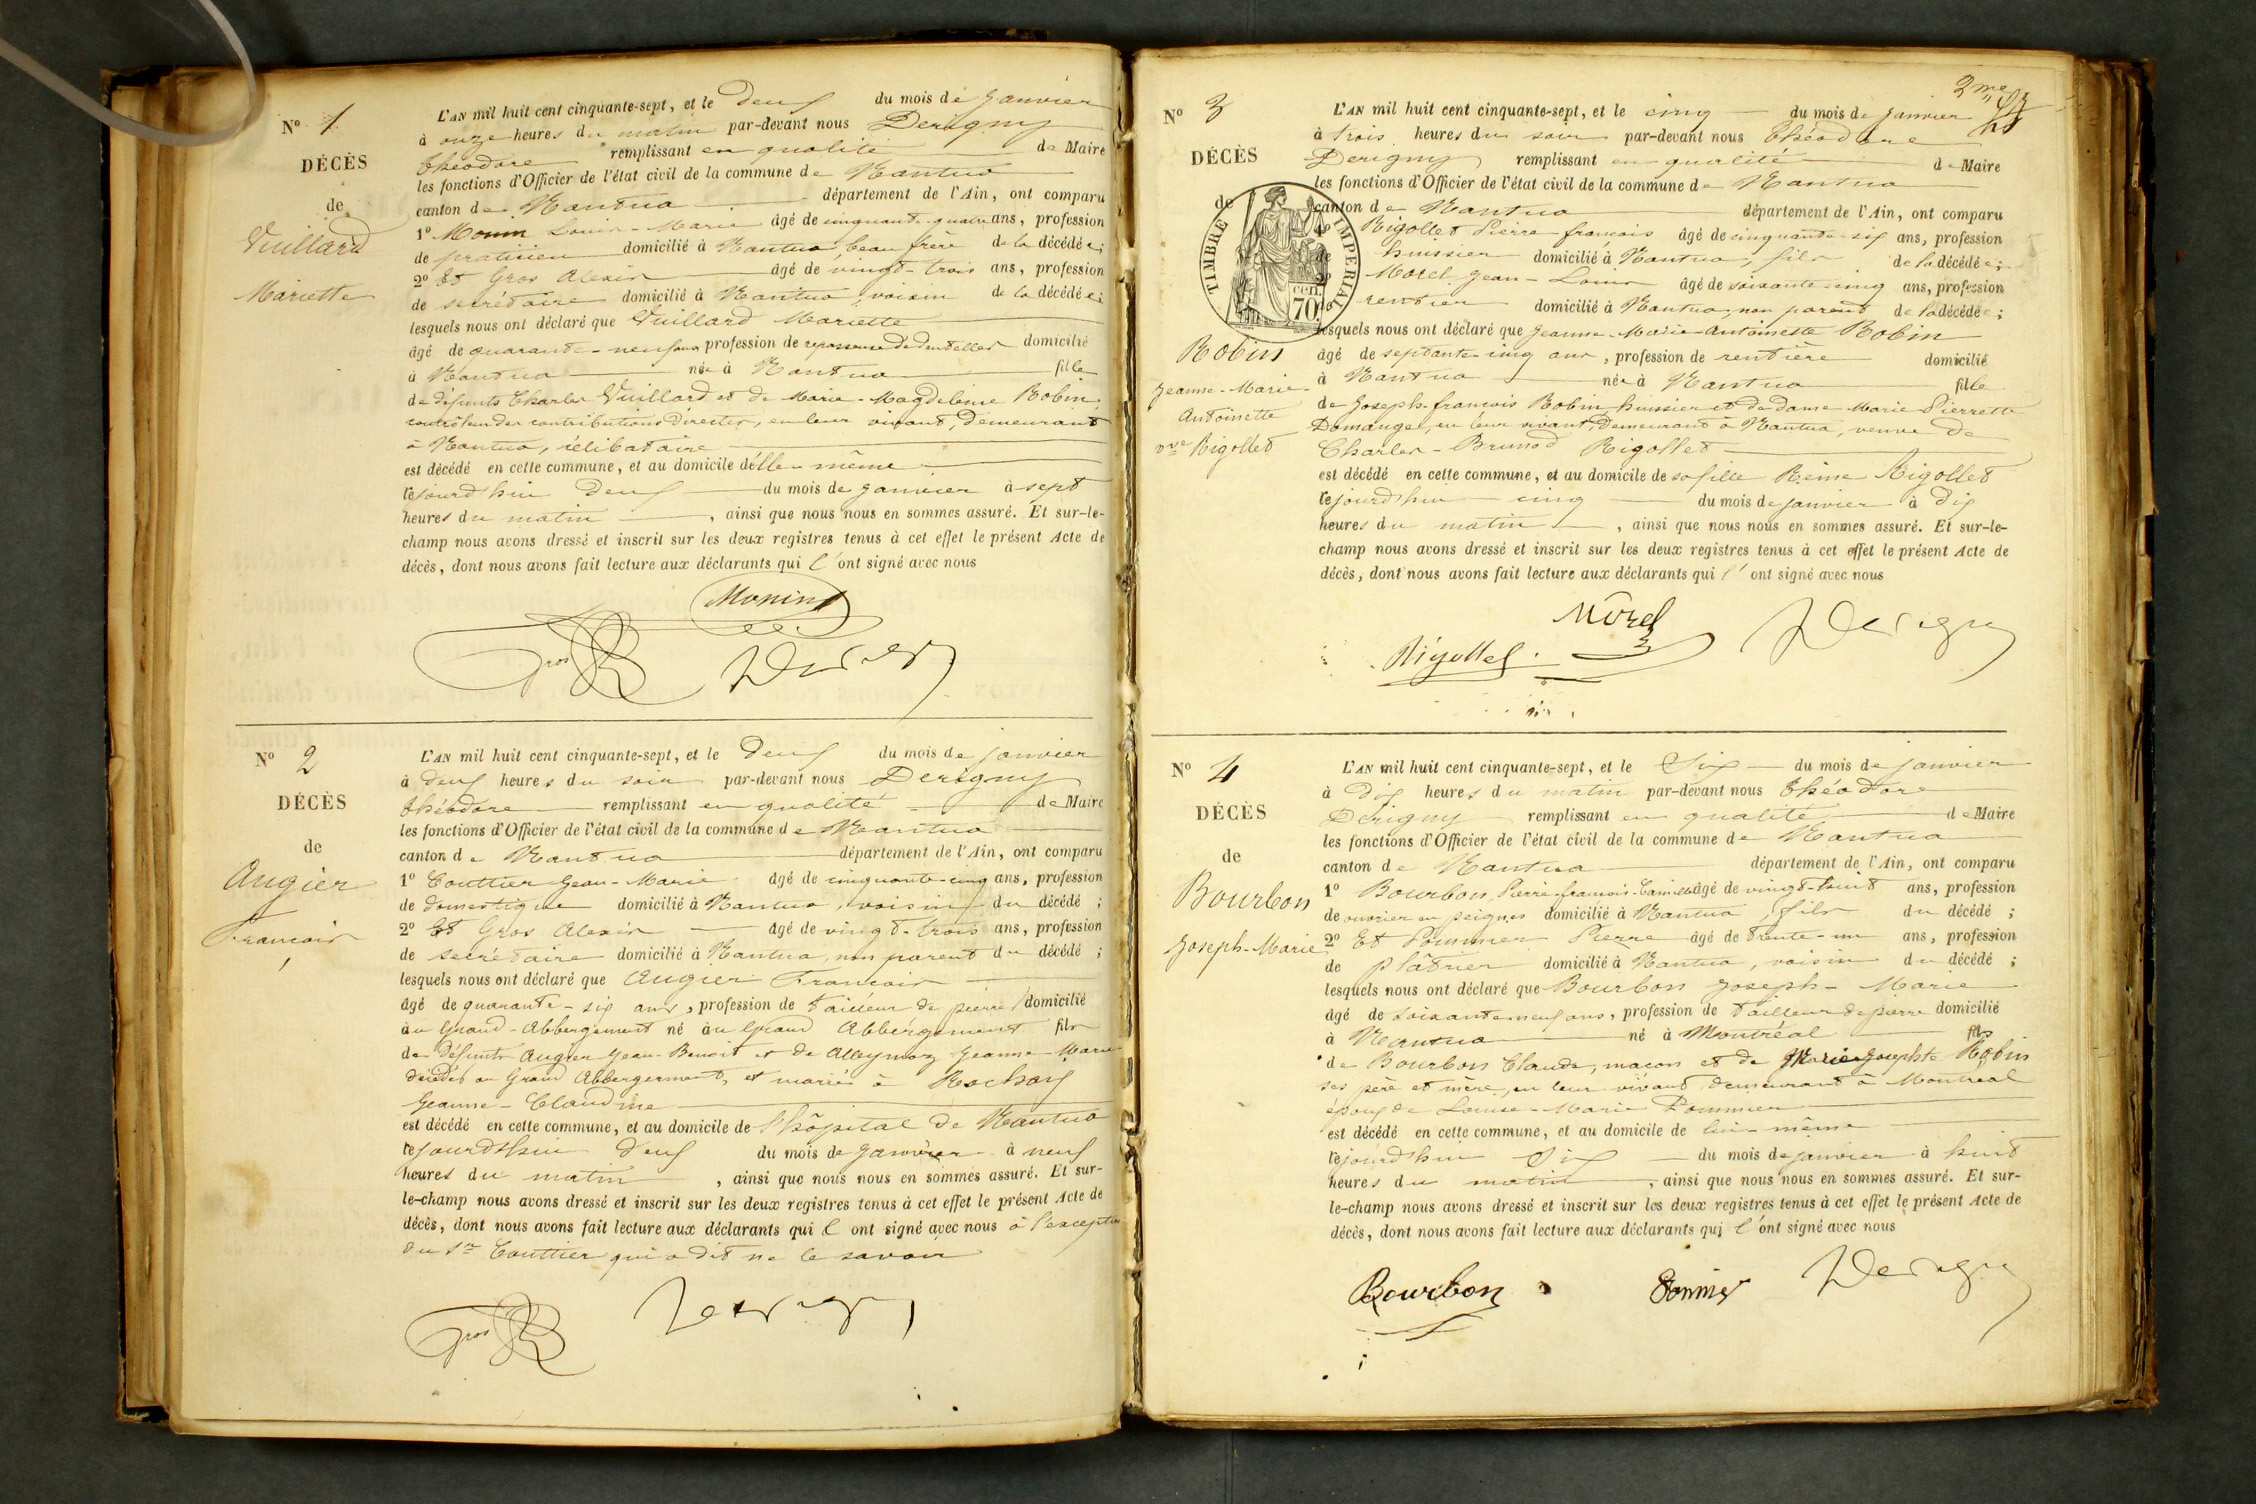 N° 1
DÉCÈS
de
Vuillard
Mariette
L'AN mil huit cent cinquante-sept, et le deux du mois de janvier
à onze heures du matin par-devant nous Derigny
théodore remplissant en qualité de Maire
les fonctions d'Officier de l'état civil de la commune de Nantua
canton de Nantua département de l'Ain, ont comparu
1° Monin Louis-Marie âgé de cinquante-quatre ans, profession
de praticien domicilié à Nantua beau frère de la décédée;
2° Et Gros Alexis âgé de vingt-trois ans, profession
de secrétaire domicilié à Nantua, voisin de la décédée;
lesquels nous ont déclaré que Vuillard Mariette
âgé de quarante-neuf ans profession de repasseuse de dentelles domicilié
à Nantua née à Nantua fille
de défunts Charles Vuillard et de Marie-Magdeleine Robin,
contrôleur des contributions directes, en leur vivant, demeurant
à Nantua, célibataire
est décédé en cette commune, et au domicile d'elle-même
cejourd'hui deux du mois de janvier à sept
heures du matin, ainsi que nous nous en sommes assuré. Et sur-le-
champ nous avons dressé et inscrit sur les deux registres tenus à cet effet le présent Acte de
décès, dont nous avons fait lecture aux déclarants qui l'ont signé avec nous
Monin
Gros Derigny
N° 2
DÉCÈS
de
Augier
François
L'AN mil huit cent cinquante-sept, et le deux du mois de janvier
à deux heures du soir par-devant nous Derigny
théodore remplissant en qualité de Maire
les fonctions d'Officier de l'état civil de la commune de Nantua
canton de Nantua département de l'Ain, ont comparu
1° Couttier Jean-Marie âgé de cinquante-cinq ans, profession
de domestique domicilié à Nantua, voisin du décédé;
2° Et Gros Alexis âgé de vingt-trois ans, profession
de secrétaire domicilié à Nantua, non parent du décédé;
lesquels nous ont déclaré que Augier François
âgé de quarante-six ans, profession de tailleur de pierre domicilié
au Grand-Abbergement né au Grand Abbergement fils
de défunts Augier Jean-Benoit et de Jeanne-Marie
décédés au Grand Abbergement, et marié à Rochay
Jeanne-Claudine
est décédé en cette commune, et au domicile de l'hôpital de Nantua
cejourd'hui deux du mois de janvier à neuf
heures du matin, ainsi que nous nous en sommes assuré. Et sur-
le-champ nous avons dressé et inscrit sur les deux registres tenus à cet effet le présent Acte de
décès, dont nous avons fait lecture aux déclarants qui l ont signé avec nous à l'exception
du Sr Couttier qui a dit ne le savoir
Gros Derigny
2me
N° 3
DÉCÈS
de
TIMBRE IMPÉRIAL
70 cen.
Robin
Jeanne-Marie
Antoinette
vve Rigollet
L'AN mil huit cent cinquante-sept, et le cinq du mois de janvier
à trois heures du soir par-devant nous théodore
Derigny remplissant en qualité de Maire
les fonctions d'Officier de l'état civil de la commune de Nantua
canton de Nantua département de l'Ain, ont comparu
1° Rigollet Pierre françois âgé de cinquante-six ans, profession
de huissier domicilié à Nantua, fils de la décédée;
2° Morel Jean-Louis âgé de soixante cinq ans, profession
de rentier domicilié à Nantua, non parent de la décédée;
lesquels nous ont déclaré que Jeanne-Marie-Antoinette Robin
âgé de septante-cinq ans, profession de rentière domicilié
à Nantua née à Nantua fille
de Joseph-françois Robin huissier et de dame Marie Pierrette
Domange, en leur vivant, demeurant à Nantua, veuve de
Charles-Brunod Rigollet
est décédé en cette commune, et au domicile de sa fille Reine Rigollet
cejourd'hui cinq du mois de janvier à dix
heures du matin, ainsi que nous nous en sommes assuré. Et sur-le-
champ nous avons dressé et inscrit sur les deux registres tenus à cet effet le présent Acte de
décès, dont nous avons fait lecture aux déclarants qui l'ont signé avec nous
Morel
Rigollet. Derigny
N° 4
DÉCÈS
de
Bourbon
Joseph-Marie
L'AN mil huit cent cinquante-sept, et le Six du mois de janvier
à dix heures du matin par-devant nous théodore
Derigny remplissant en qualité de Maire
les fonctions d'Officier de l'état civil de la commune de Nantua
canton de Nantua département de l'Ain, ont comparu
1° Bourbon Pierre-françois-Camille âgé de vingt-huit ans, profession
de ouvrier en peignes domicilié à Nantua, fils du décédé;
2° Et Pommier Pierre âgé de trente-un ans, profession
de plâtrier domicilié à Nantua, voisin du décédé;
lesquels nous ont déclaré que Bourbon Joseph-Marie
âgé de soixante neuf ans, profession de tailleur de pierre domicilié
à Nantua né à Montréal fils
de Bourbon Claude, maçon et de Marie Josephte Robin
ses père et mère, en leur vivant, demeurant à Montréal
époux de Louise-Marie Pommier
est décédé en cette commune, et au domicile de lui-même
cejourd'hui Six du mois de janvier à huit
heures du matin, ainsi que nous nous en sommes assuré. Et sur-
le-champ nous avons dressé et inscrit sur les deux registres tenus à cet effet le présent Acte de
décès, dont nous avons fait lecture aux déclarants qui l'ont signé avec nous
Bourbon Pommier Derigny